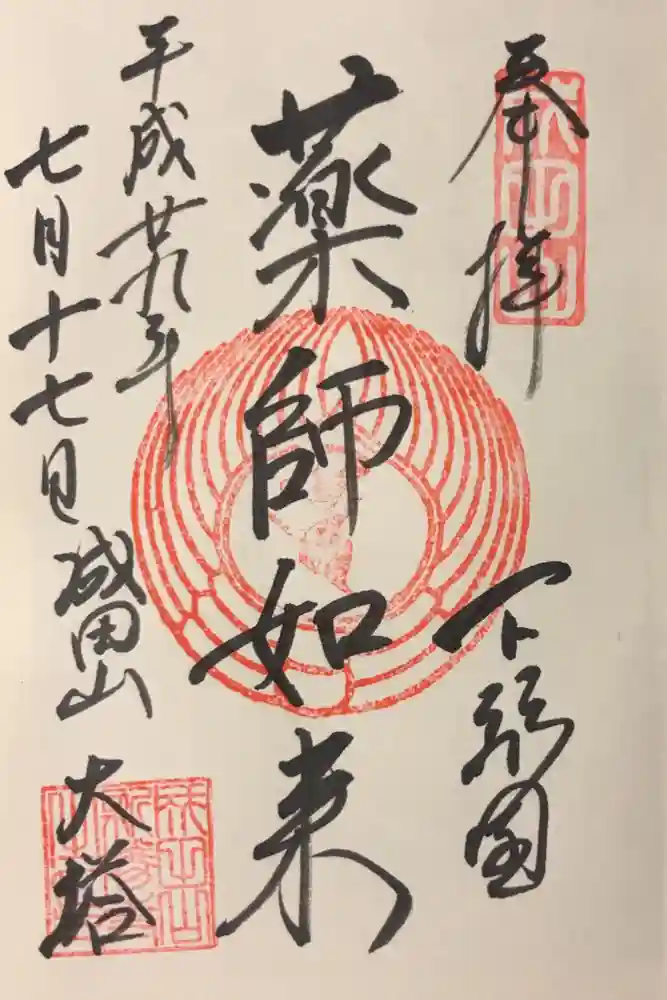 奉拝
成田山
下総国
薬師如来
平成廿九年
七月十七日
成田山 大塔